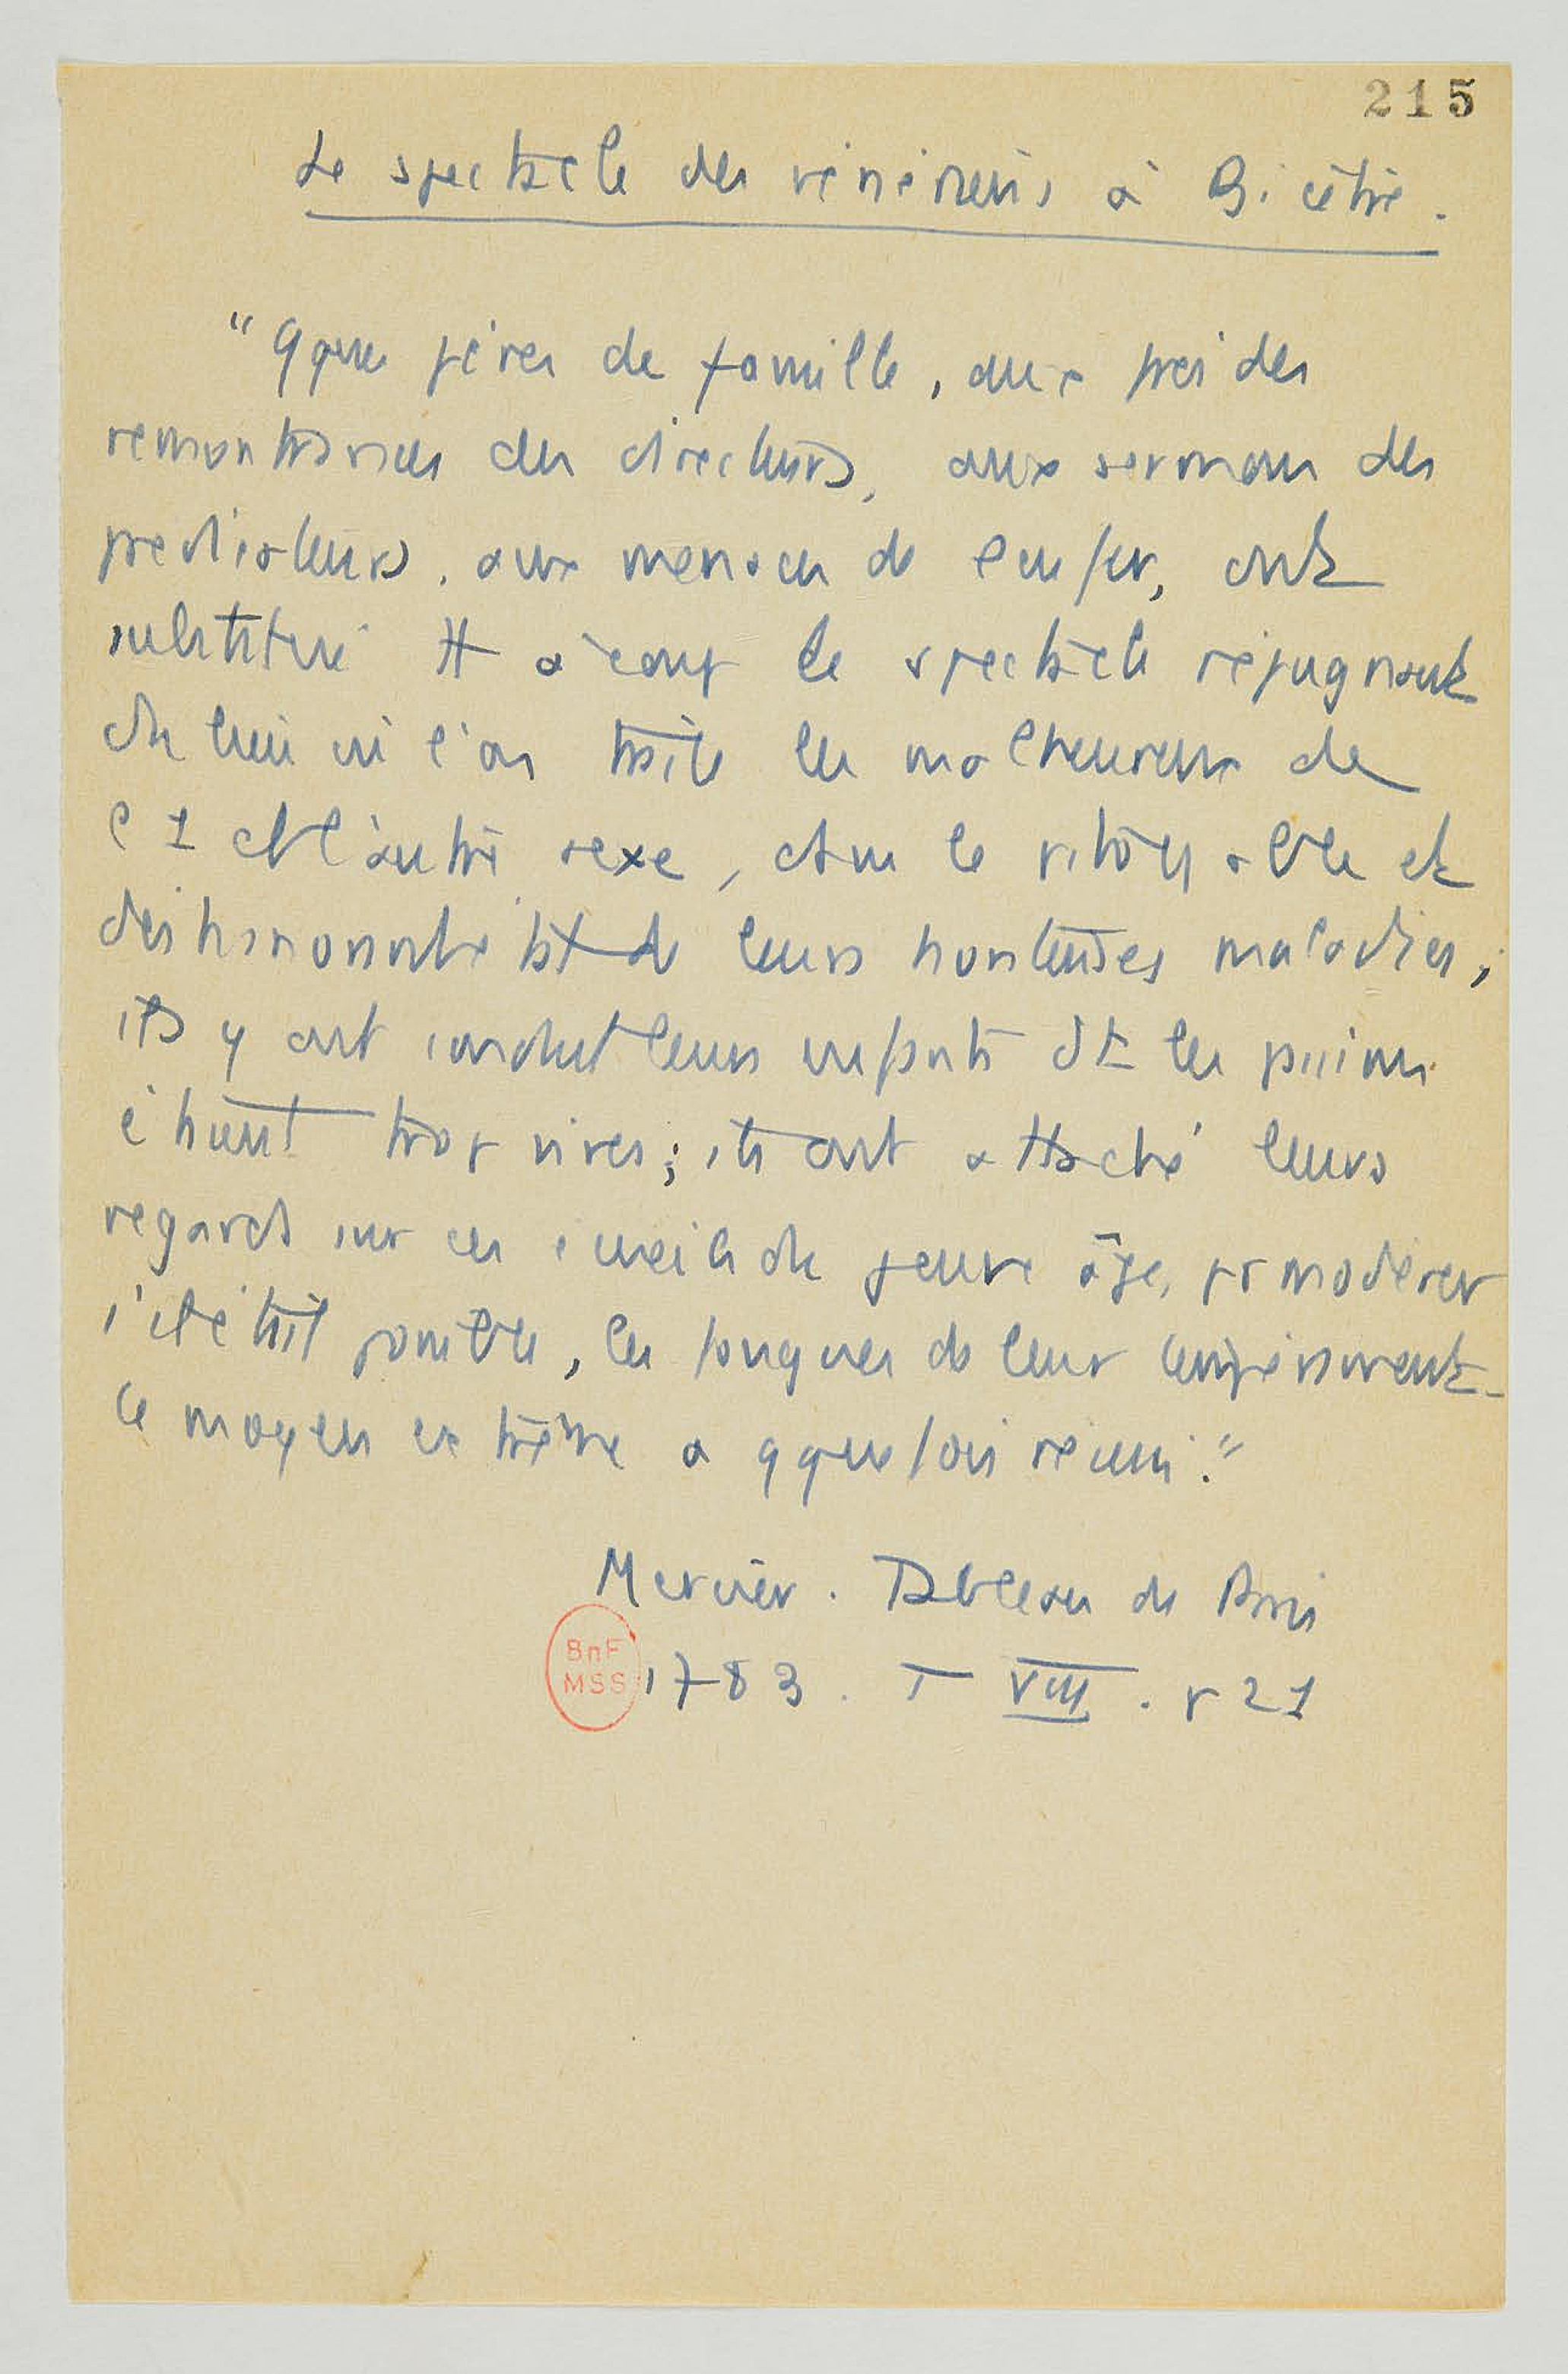 215
Le spectacle des vénériens à Bicêtre.
"Qque pères de famille, aux froides
remontrances des directeurs, aux sermons des
predicateurs, aux menaces de l'enfer, ont
substitué tt à coup le spectacle répugnant
du lieu où l'on traite les malheureux de
l'1 et l'autre sexe, dans le pitoyable et
deshonorable état de leurs honteuses maladies,
ils y ont conduit leurs enfants dt les passions
étaient trop vives; ils ont attaché leurs
regards sur ces écueils du jeune âge, pr modérer
s'il était possible, les fougues de leur tempérament.
Ce moyen extrême a qquefois réussi."
Mercier. Tableau de Paris
BnF
MSS
1783. T VIII. p 21